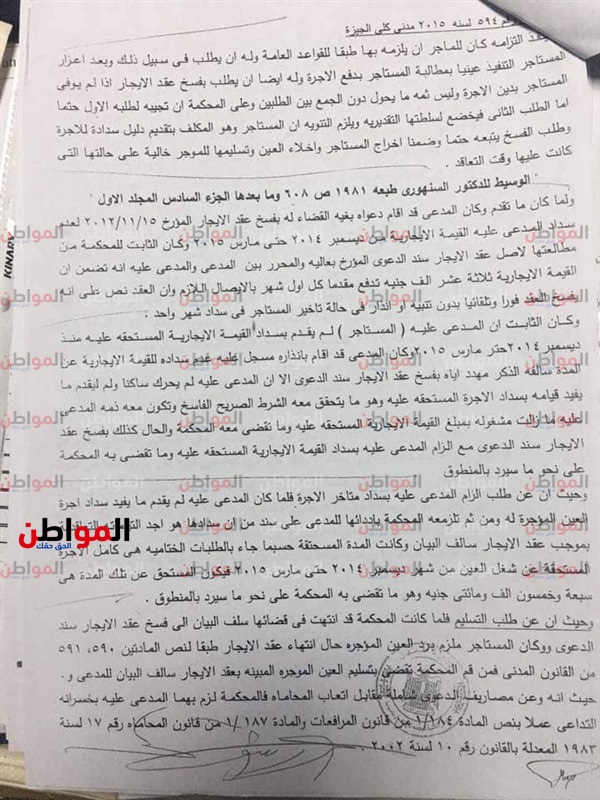 رقم ٥٩٤ لسنة ٢٠١٥ مدنى كلى الجيزة
التزامه كان للماجر ان يلزمه بها طبقا للقواعد العامة وله ان يطلب فى سبيل ذلك وبعد اعزار
المستاجر التنفيذ عينيا بمطالبة المستاجر بدفع الاجرة وله ايضا ان يطلب بفسخ عقد الايجار اذا لم يوفى
المستاجر بدين الاجرة وليس ثمه ما يحول دون الجمع بين الطلبين وعلى المحكمة ان تجيبه لطلبه الاول حتما
اما الطلب الثانى فيخضع لسلطتها التقديريه ويلزم التنويه ان المستاجر وهو المكلف بتقديم دليل سدادة للاجرة
وطلب الفسخ يتبعه حتما وضمنا اخراج المستاجر واخلاء العين وتسليمها للموجر خالية على حالتها التى
كانت عليها وقت التعاقد .
الوسيط للدكتور السنهورى طبعه ١٩٨١ ص ٦٠٨ وما بعدها الجزء السادس المجلد الاول
ولما كان ما تقدم وكان المدعى قد اقام دعواه بغيه القضاء له بفسخ عقد الايجار المؤرخ ٢٠١٢/١١/١٥ لعدم
سداد المدعى عليه القيمة الايجارية من ديسمبر ٢٠١٤ حتى مارس ٢٠١٥ وكان الثابت للمحكمة من
مطالعتها لاصل عقد الايجار سند الدعوى المؤرخ بعاليه والمحرر بين المدعى والمدعى عليه انه تضمن ان
القيمة الايجارية ثلاثة عشر الف جنيه تدفع مقدما كل اول شهر بالايصال اللازم وان العقد نص على انه
يفسخ العقد فورا وتلقائيا بدون تنبيه او انذار فى حالة تاخير المستاجر فى سداد شهر واحد .
وكان الثابت ان المدعى عليه ( المستاجر ) لم يقدم بسداد القيمة الايجارية المستحقه عليه منذ
ديسمبر ٢٠١٤حتر مارس ٢٠١٥وكان المدعى قد اقام بانذاره مسجل عليه عدم سداده للقيمة الايجارية عن
المدة سالفه الذكر مهدد اياه بفسخ عقد الايجار سند الدعوى الا ان المدعى عليه لم يحرك ساكنا ولم ليقدم ما
يفيد قيامه بسداد الاجرة المستحقه عليه وهو ما يتحقق معه الشرط الصريح الفاسخ وتكون معه ذمه المدعى
عليه ما زالت مشغوله بمبلغ القيمة الايجارية المستحقه عليه وما تقضى معه المحكمة والحال كذلك بفسخ عقد
الايجار سند الدعوى مع الزام المدعى عليه بسداد القيمة الايجارية المستحقه عليه وما تقضى به المحكمة
على نحو ما سيرد بالمنطوق
وحيث ان عن طلب الزام المدعى عليه بسداد متاخر الاجرة فلما كان المدعى عليه لم يقدم ما يفيد سداد اجرة
العين المؤجرة له ومن ثم تلزمعه المحكمة بادائها للمدعى على سند من ان سدادها هو اجد
بموجب عقد الايجار سالف البيان وكانت المدة المستحقة حسبما جاء بالطلبات الختاميه هى كامل الاجرة
المستحقة عن شغل العين من شهر ديسمبر ٢٠١٤ حتى مارس ٢٠١٥ فيكون المستحق عن تلك المدة هى
سبعة وخمسون الف ومائتى جنيه وهو ما تقضى به المحكمة على نحو ما سيرد بالمنطوق .
وحيث ان عن طلب التسليم فلما كانت المحكمة قد انتهت فى قضائها سلف البيان الى فسخ عقد الايجار سند
الدعوى ووكان المستاجر ملزم برد العين المؤجره حال انتهاء عقد الايجار طبقا لنص المادتين ٥٩٠، ٥٩١
من القانون المدنى فمن قم المحكمة تقضى بتسليم العين الموجره المبينه بعقد الايجار سالف البيان للمدعى و.
حيث انه وعن مصاريف الدعوى شاملة مقابل اتعاب المحاماه فالمحكمة لزم بهما المدعى عليه بخسرانه
التداعى عملا بنص المادة ١/١٨٤ من قانون المرافعات والمادة ١/١٨٧ من قانون المحاماه رقم ١٧ لسنة
١٩٨٣ المعدلة بالقانون رقم ١٠ لسنة ٢٠٠٢ .
المواطن
الحق حقك
KINARY